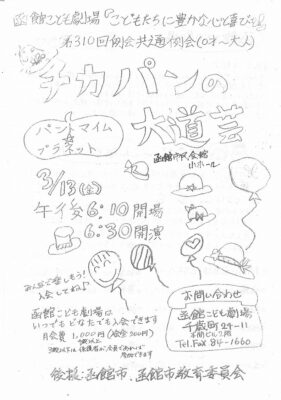 函館こども劇場『こどもたちに豊かな心と喜びを』
第310回例会共通例会(0才〜大人)
チカパンの
大道芸
パントマイム
プラネット
函館市民会館
小ホール
3/13(金)
午後6:10開場
6:30開演
みんなで楽しもう!
入会してね♪
函館こども劇場は
いつでもどなたでも入会できます
月会費 1,000円(入会金200円)
お問い合わせ
函館こども劇場
千歳町24-11
Tel.Fax 84-1660
後援:函館市、函館市教育委員会